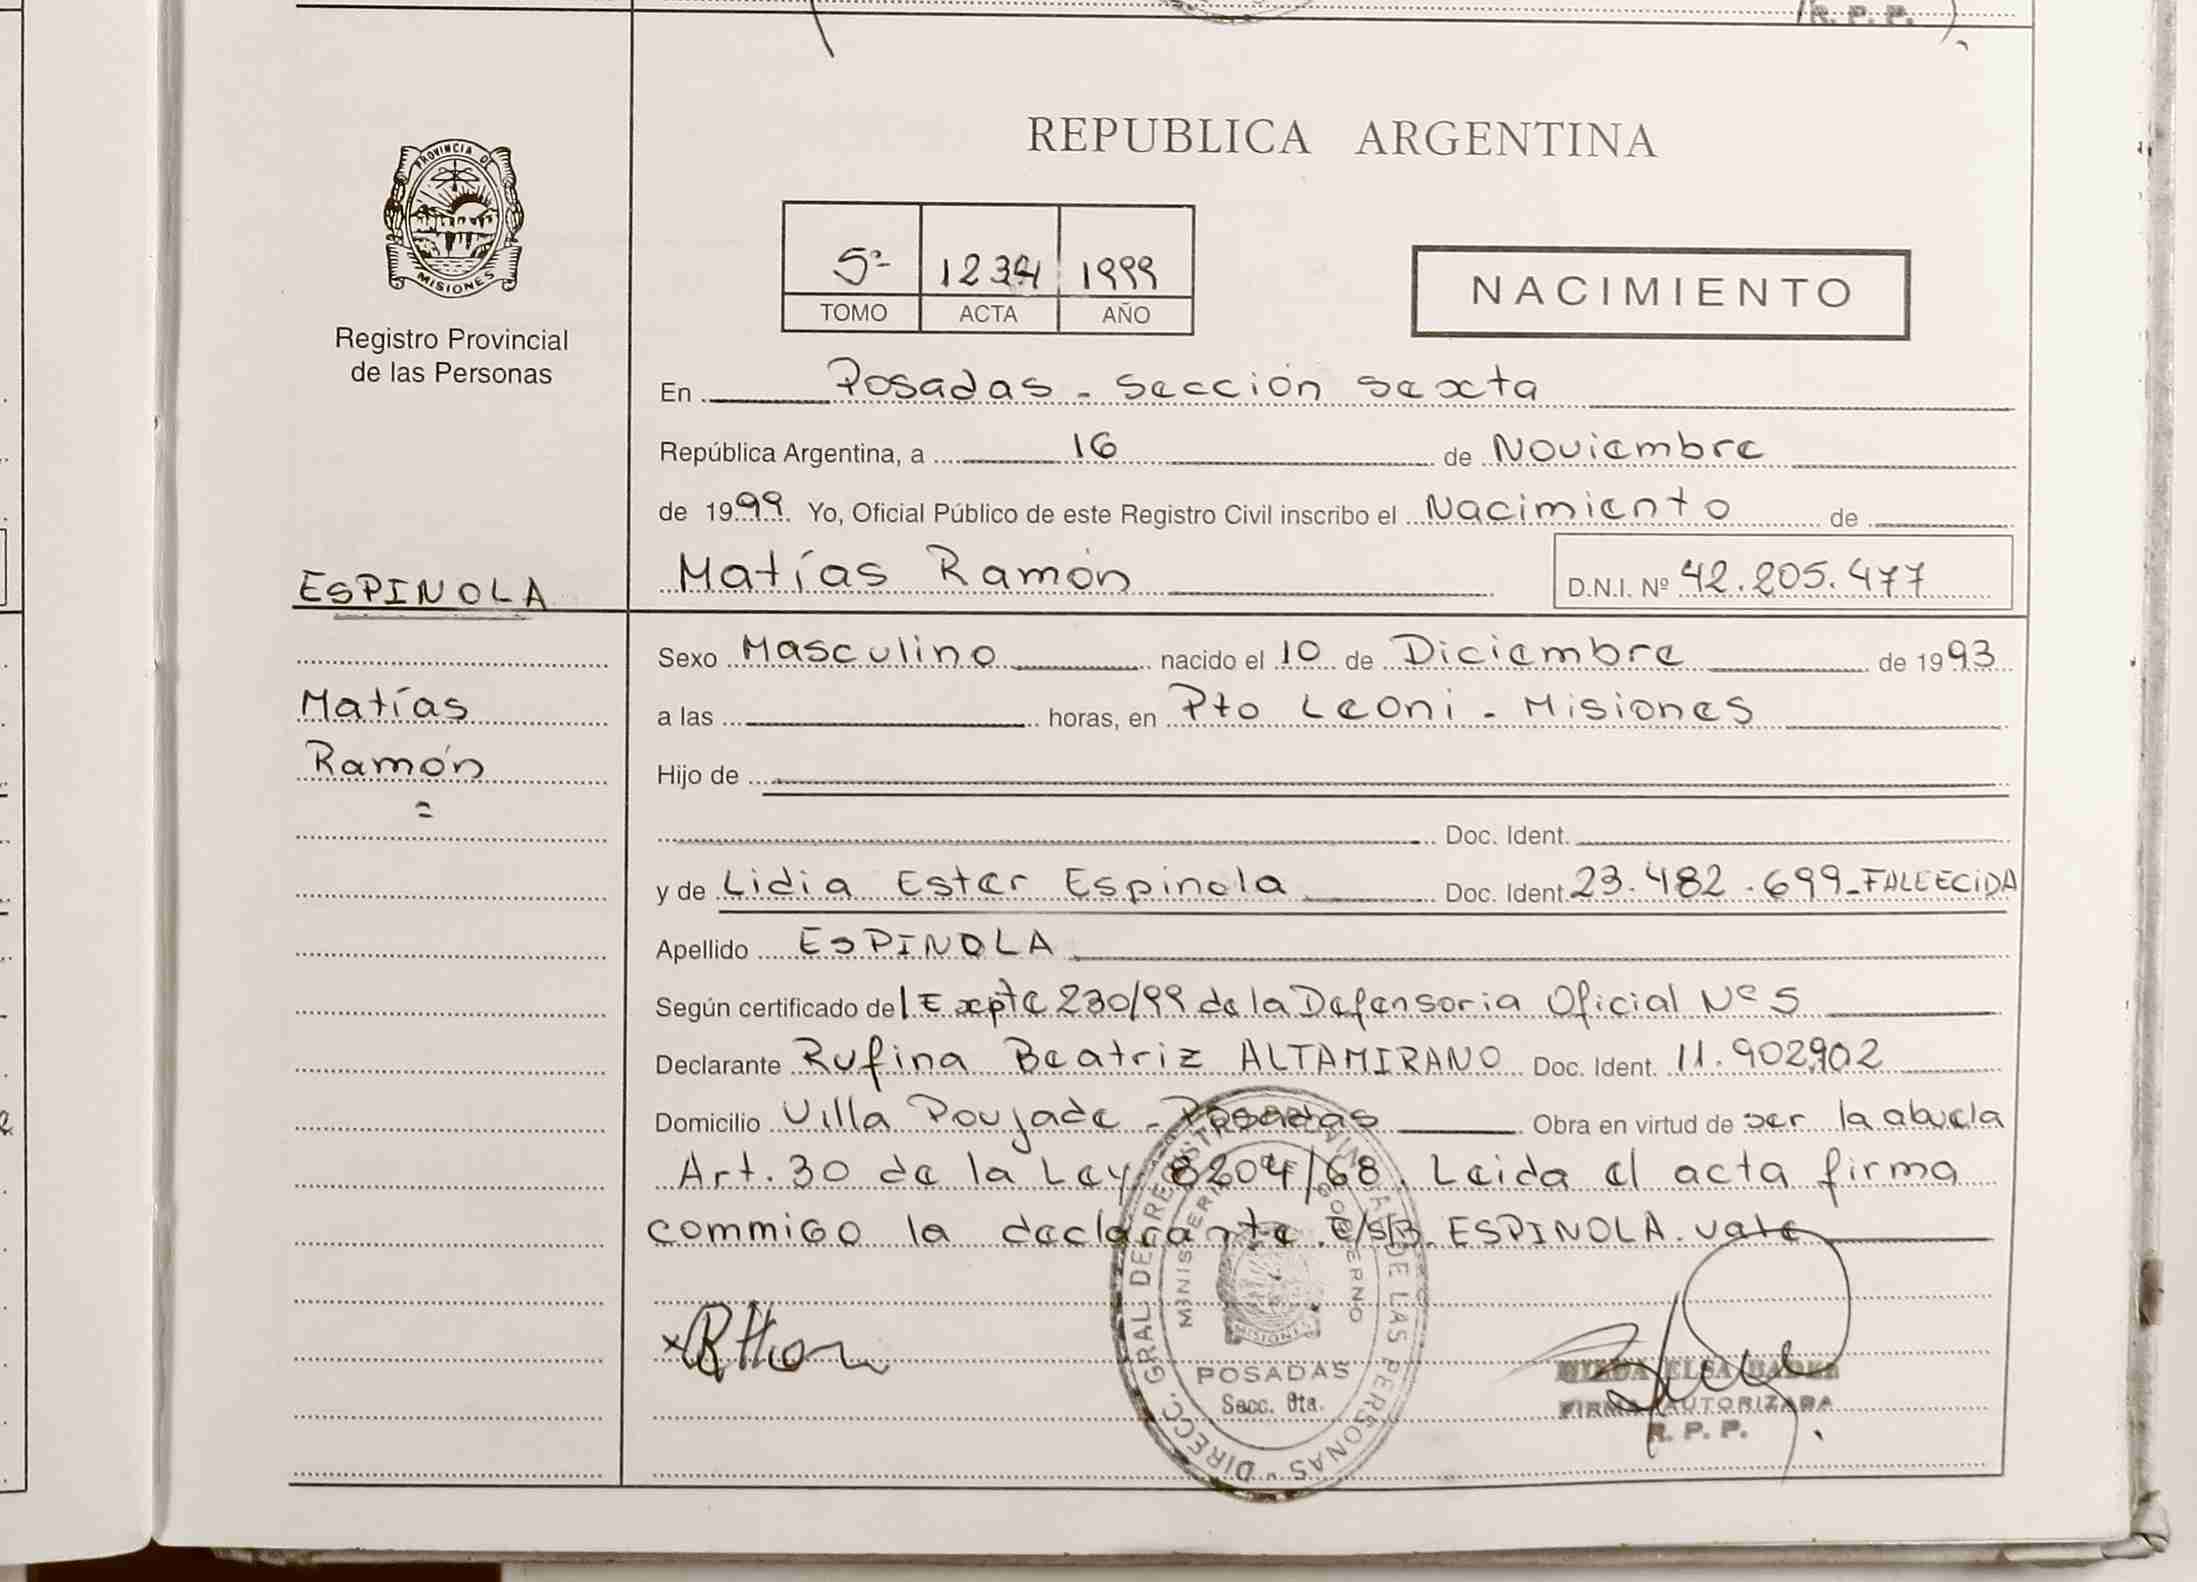 R. P. P.
PROVINCIA DE
MISIONES
Registro Provincial
de las Personas
REPUBLICA ARGENTINA
5ª 1999
TOMO ACTA AÑO
NACIMIENTO
En Posadas - Sección Sexta
República Argentina, a 16 de Noviembre
de 1999 Yo, Oficial Público de este Registro Civil inscribo el Nacimiento de
ESPINOLA Matías Ramón D.N.I. Nº 42.205.477
Sexo Masculino nacido el 10 de Diciembre de 1993
Matías a las horas, en Pto Leoni - Misiones
Ramón Hijo de
=
Doc. Ident.
y de Lidia Ester Espinola Doc. Ident. 23.482.699-FALEECIDA
Apellido ESPINOLA
Según certificado del Expte 230/99 de la Defensoria Oficial Nº 5
Declarante Rufina Beatriz ALTAMIRANO Doc. Ident. 11.902.902
Domicilio Villa Poujade - Posadas Obra en virtud de ser la abuela
Art. 30 de la Ley 8204/68. Leida el acta firma
commigo la declarante. E/S/B. ESPINOLA. vale
DIRECC. GRAL DE REGISTRO PROVINCIAL DE LAS PERSONAS
MINISTERIO DE GOBIERNO
MISIONES
POSADAS
Secc. 6ta.
ELSA
FIRMA AUTORIZADA
R. P. P.